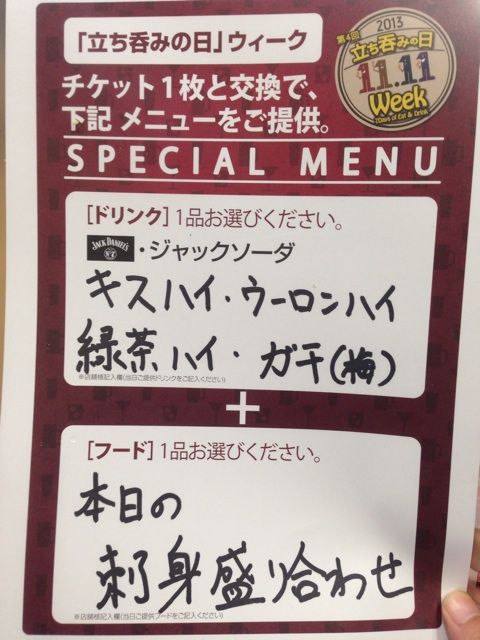 「立ち呑みの日」ウィーク
2013
第4回
立ち呑みの日
11.11
Week
7Days of Eat & Drink
チケット1枚と交換で、
下記 メニューをご提供。
SPECIAL MENU
[ドリンク] 1品お選びください。
JACK DANIEL'S ・ジャックソーダ
キスハイ・ウーロンハイ
緑茶ハイ・ガチ(梅)
※店舗様記入欄(当日ご提供ドリンクをご記入ください)
+
[フード] 1品お選びください。
本日の
刺身盛り合わせ
※店舗様記入欄(当日ご提供フードをご記入ください)